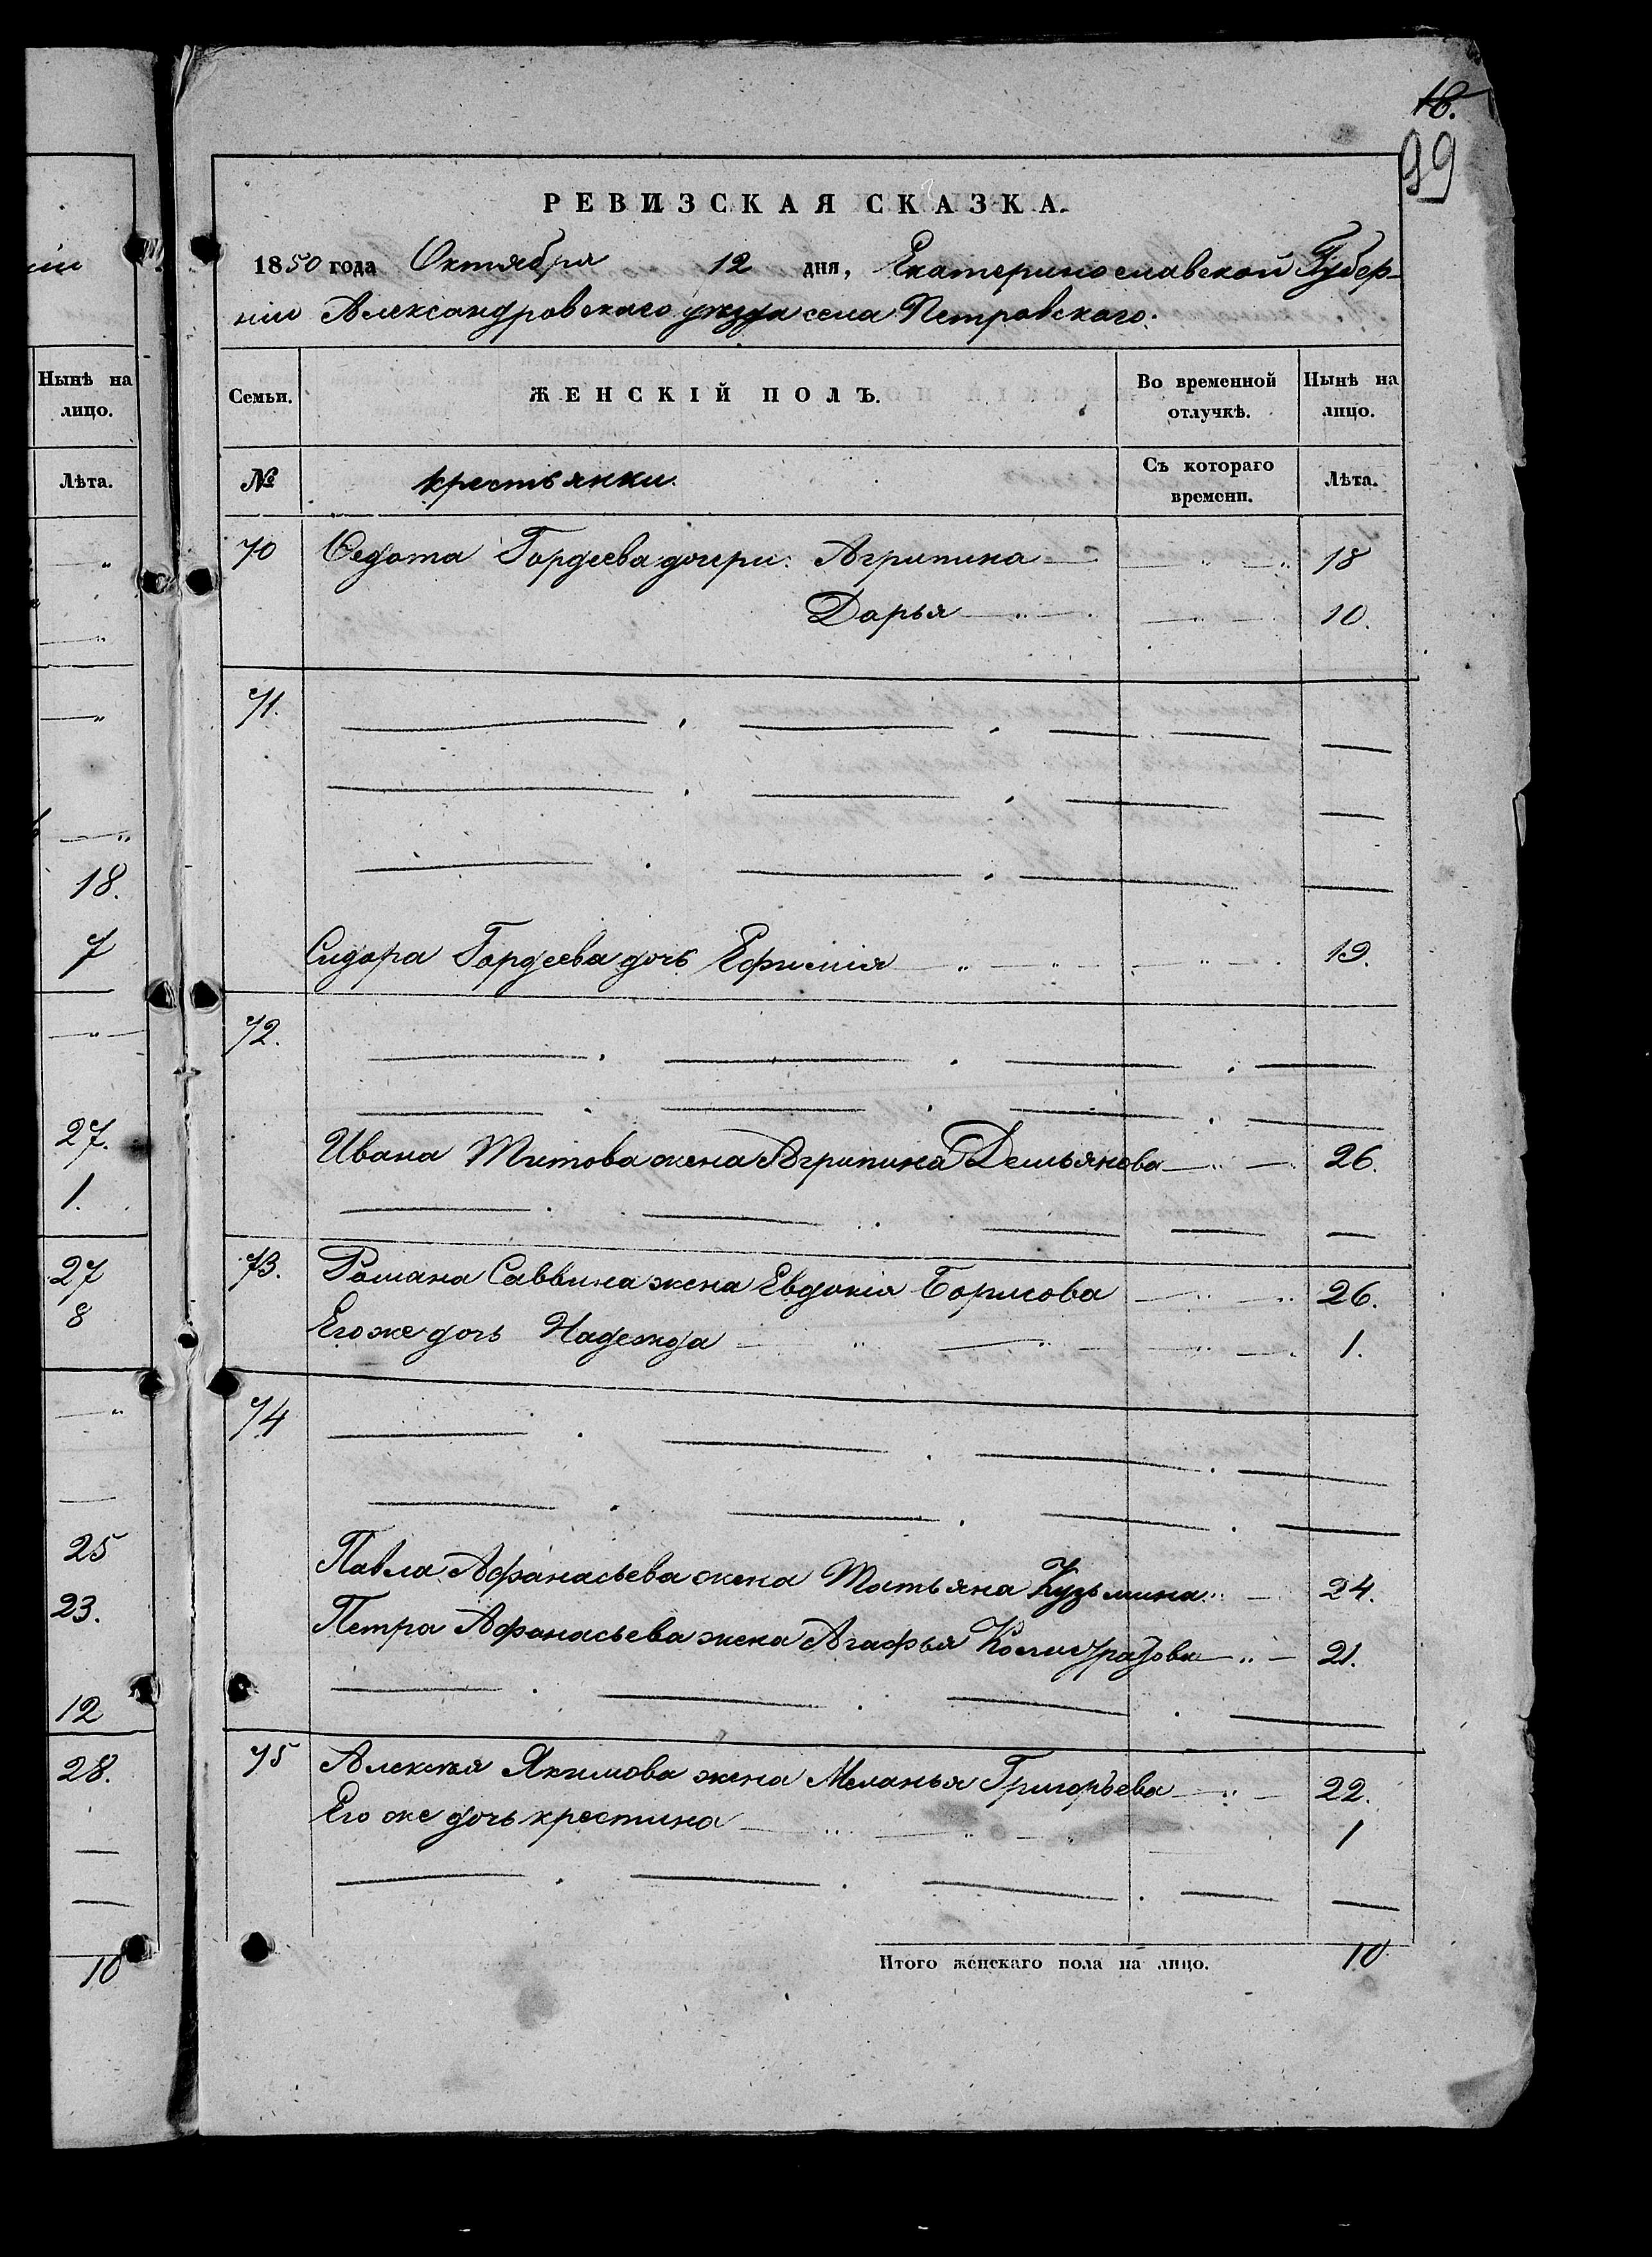 ніи
Нынѣ на
лицо.
Лѣта.
18.
7
27.
1.
27
8
25
23.
12
28.
10
18.
99
РЕВИЗСКАЯ СКАЗКА.
1850 года Октября 12 дня, Екатеринославской Губер-
ніи Александровскаго уезда села Петровскаго.
Семьи. ЖЕНСКІЙ ПОЛЪ. Во временной отлучкѣ. Нынѣ на лицо.
№ крестьянки Съ котораго времени. Лѣта.
70 Федота Гордеева дочери: Агрипина 18
Дарья 10.
71.
Сидора Гордеева дочь Ефимія 19.
72.
Ивана Титова жена Агрипина Демьянова 26.
73. Романа Саввина жена Евдокія Борисова 26.
Его же дочь Надежда 1.
74
Павла Афанасьева жена Татьяна Кузьмина 24.
Петра Афанасьева жена Агафья 21.
75 Алексея Якимова жена Меланья Григорьева 22.
Его же дочь крестина 1
Итого женскаго пола на лицо. 10